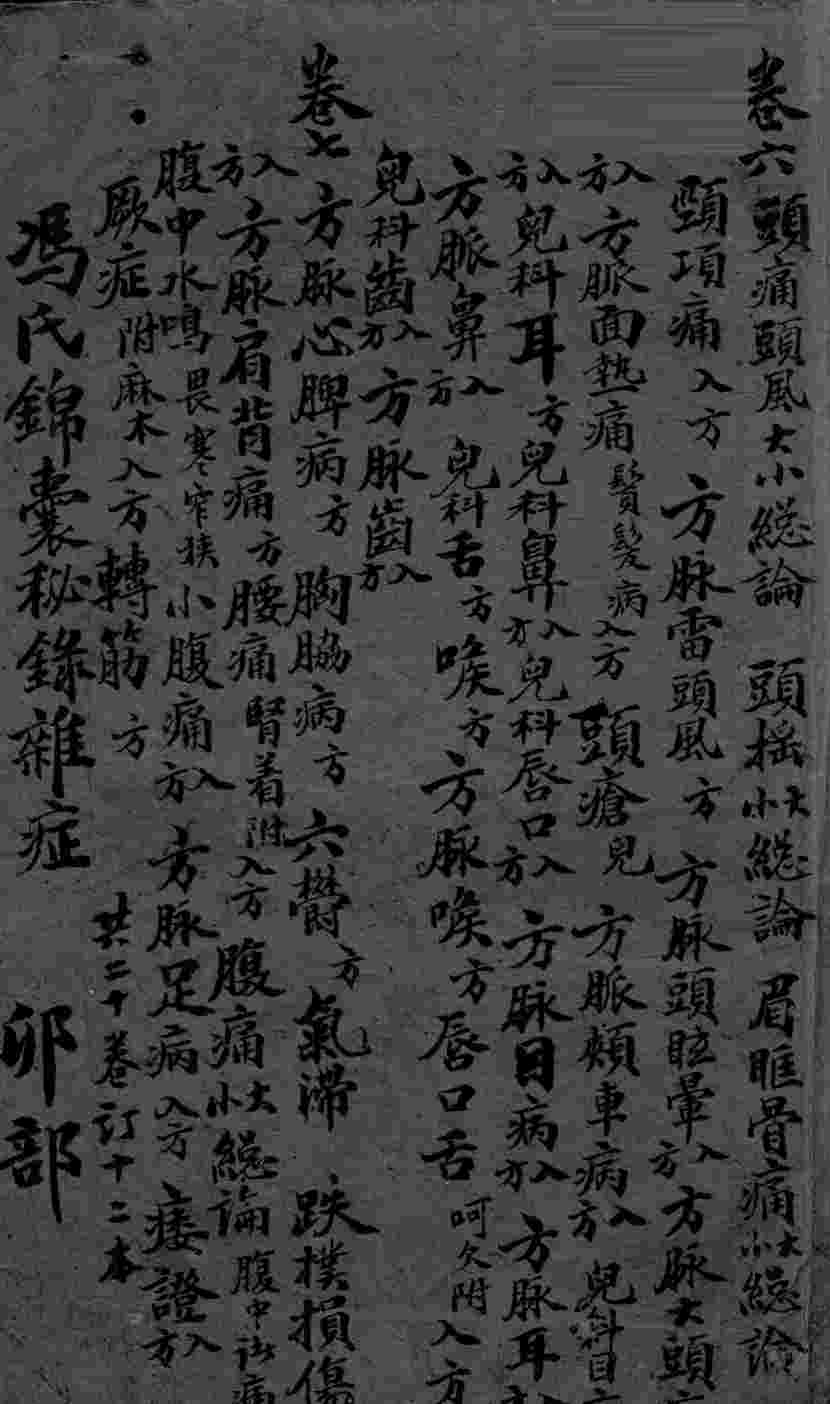 卷六 頭痛頭風大小総論 頭搖大小総論 眉眶骨痛大小総論
頸項痛入方 方脉雷頭風方 方脉頭眩暈入方 方脉大頭
入方 方脈面熱痛 鬢髮病入方 頭瘡兒 方脈頰車病入方 兒科目
入方 兒科耳方 兒科鼻入方 兒科唇口入方 方脉目病入方 方脈耳
方脈鼻入方 兒科舌方 喉方 方脈喉方 唇口舌 呵欠附入方
兒科齒入方 方脉齒入方
卷七 方脉心脾病方 胸脇病方 六欝方 氣滞 跌撲損傷
入方 方脈肩背痛方 腰痛 腎着附入方 腹痛大小総論 腹中
腹中水鳴 畏寒窄狹 小腹痛入方 方脉足病入方 痿證入方
厥症 附麻木入方 轉筋方 共二十卷訂十二本
馮氏錦囊秘錄雜症 卯部